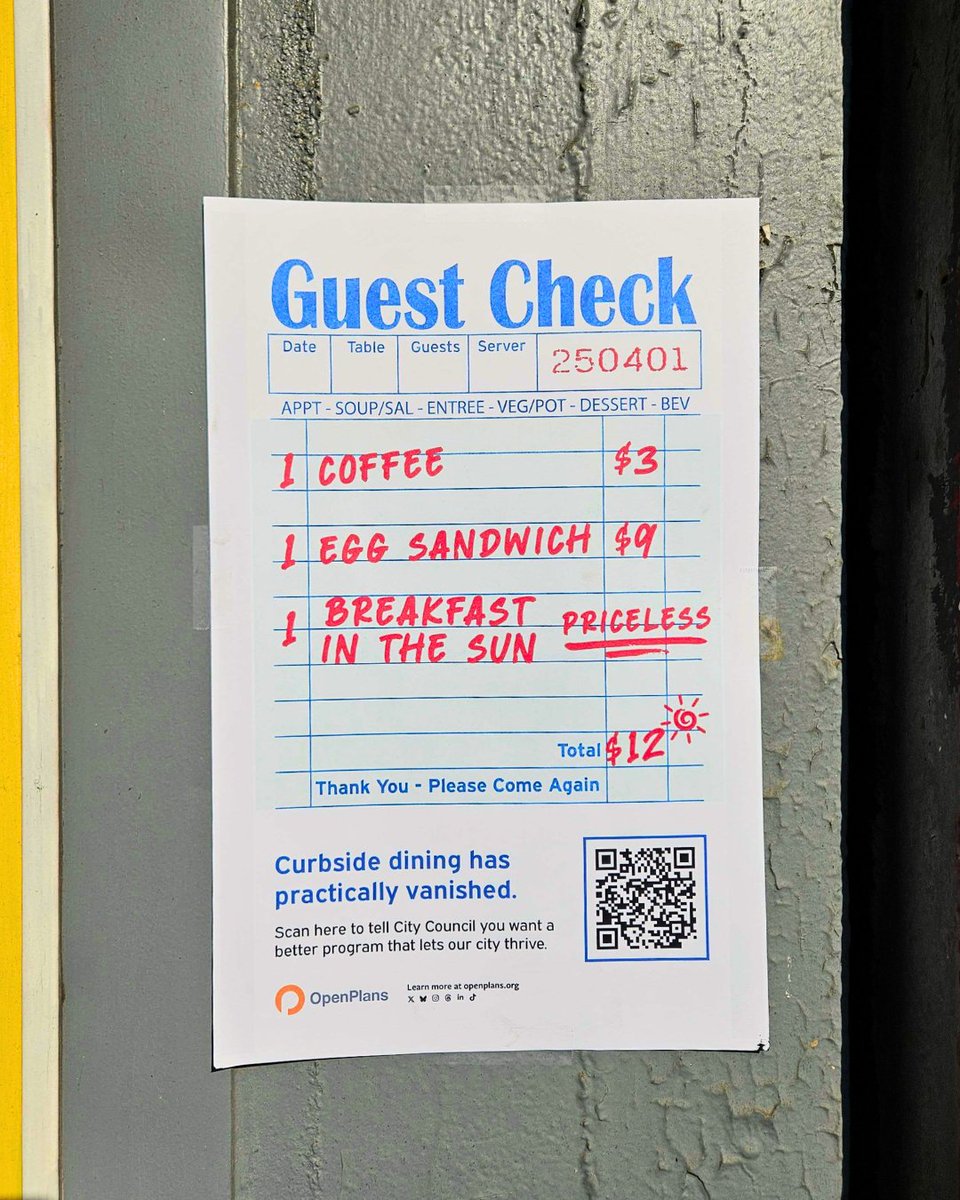 Guest Check
Date Table Guests Server 250401
APPT - SOUP/SAL - ENTREE - VEG/POT - DESSERT - BEV
1 COFFEE $3
1 EGG SANDWICH $9
1 BREAKFAST IN THE SUN PRICELESS
Total $12
Thank You - Please Come Again
Curbside dining has
practically vanished.
Scan here to tell City Council you want a
better program that lets our city thrive.
OpenPlans
Learn more at openplans.org